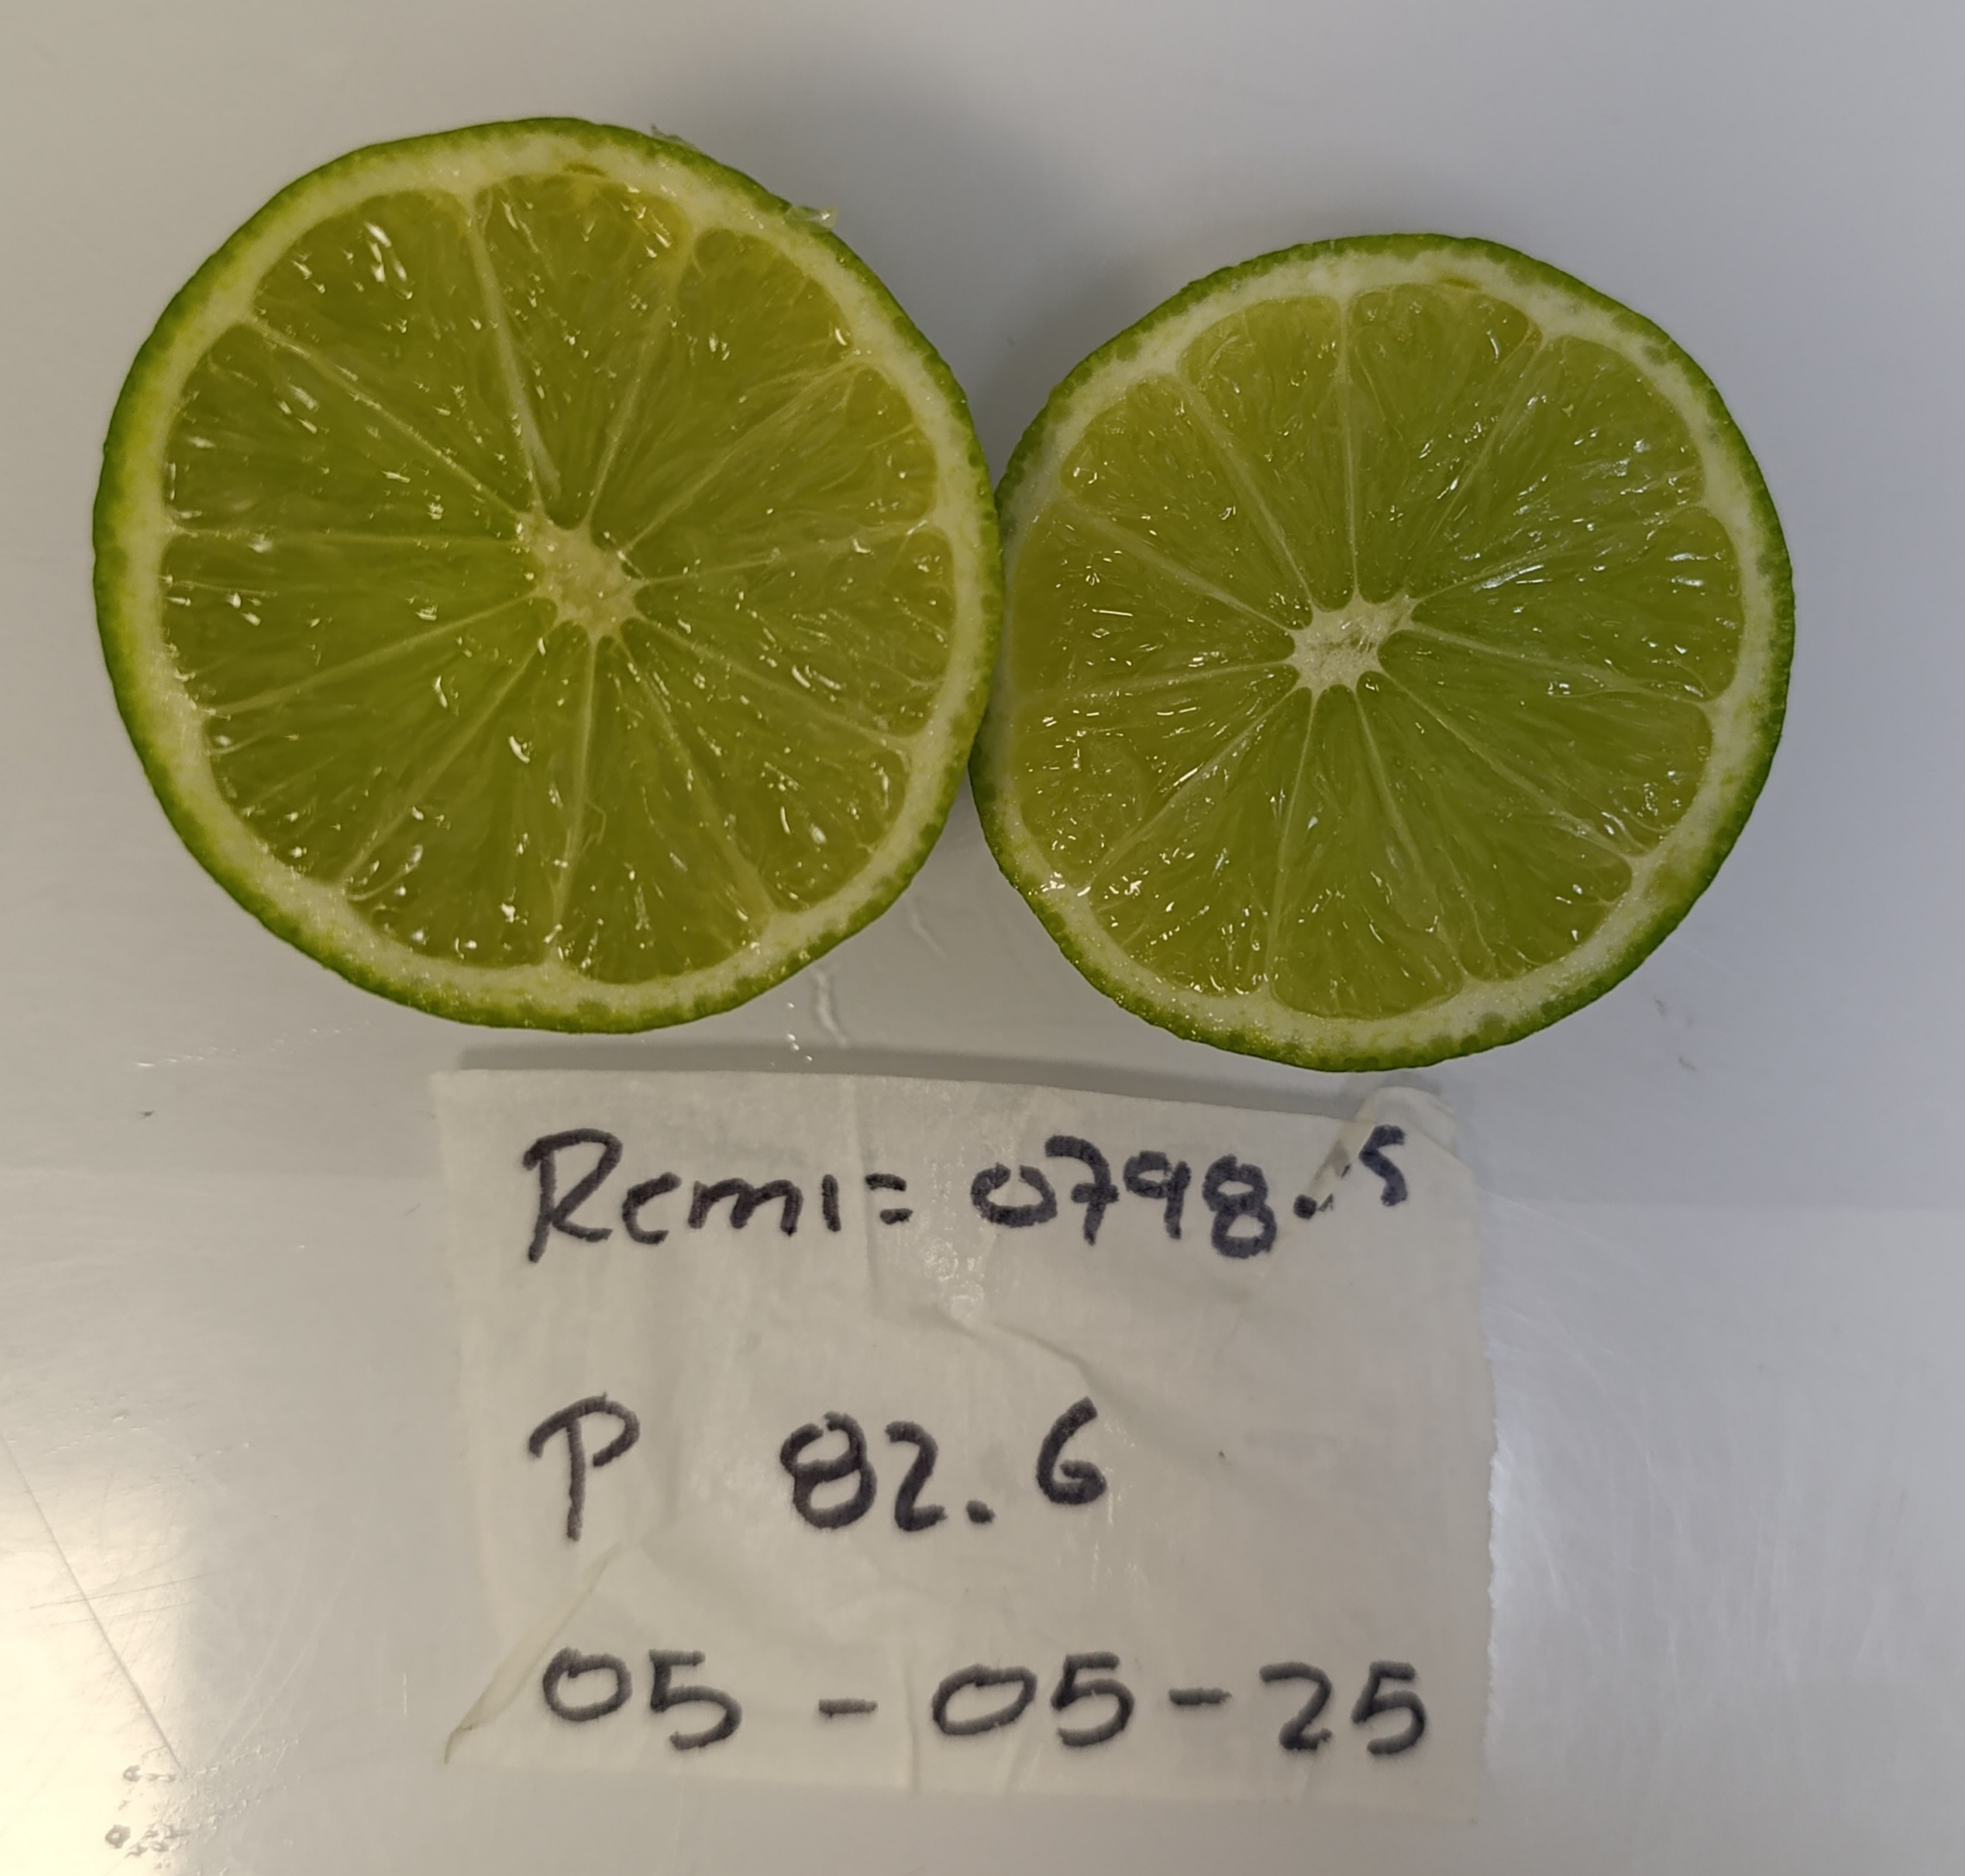 Remi= 0798.5
P 82.6
05-05-25